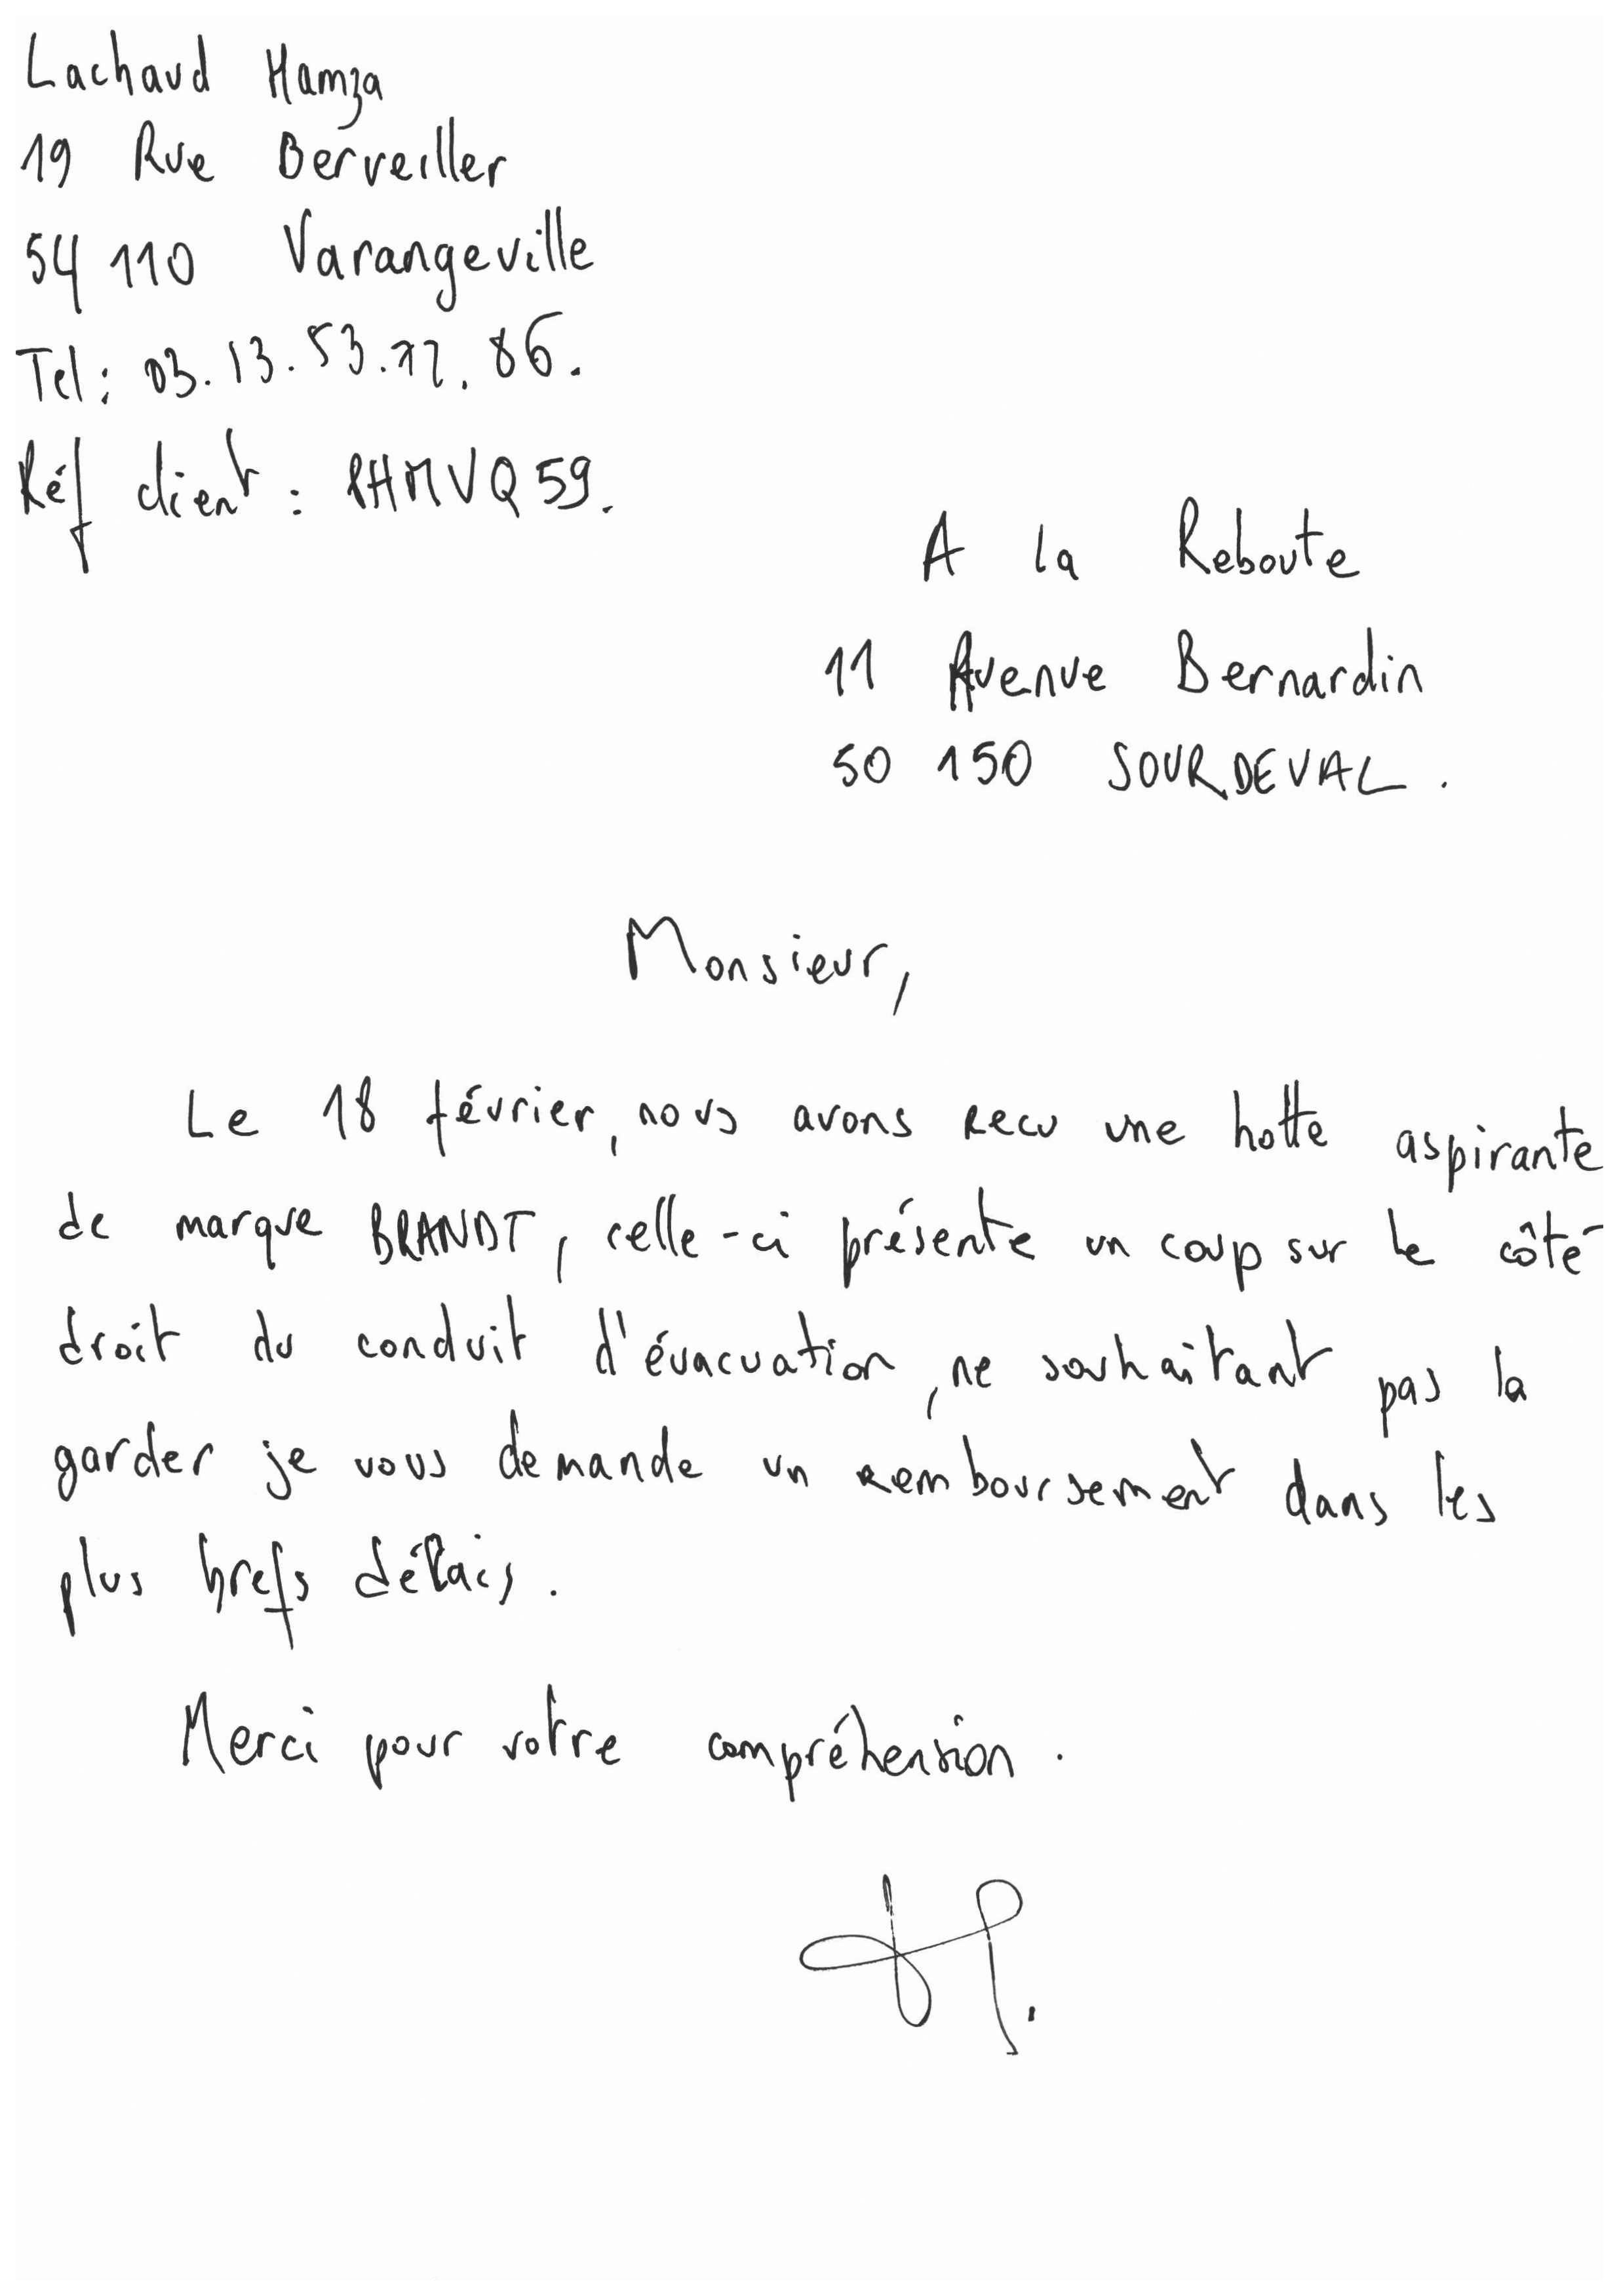 Lachaud Hamza
19 Rue Berveiller
54 110 Varangeville
Tel: 03.13.53.12.86.
Réf client : RHMVQ59.
A la Reboute
11 Avenue Bernardin
50 150 SOURDEVAL.
Monsieur,
Le 18 février, nous avons recu une hotte aspirante
de marque BRANDT, celle-ci présente un coup sur le côté
droit du conduit d'évacuation, ne souhaitant pas la
garder je vous demande un remboursement dans les
plus brefs délais.
Merci pour votre compréhension.